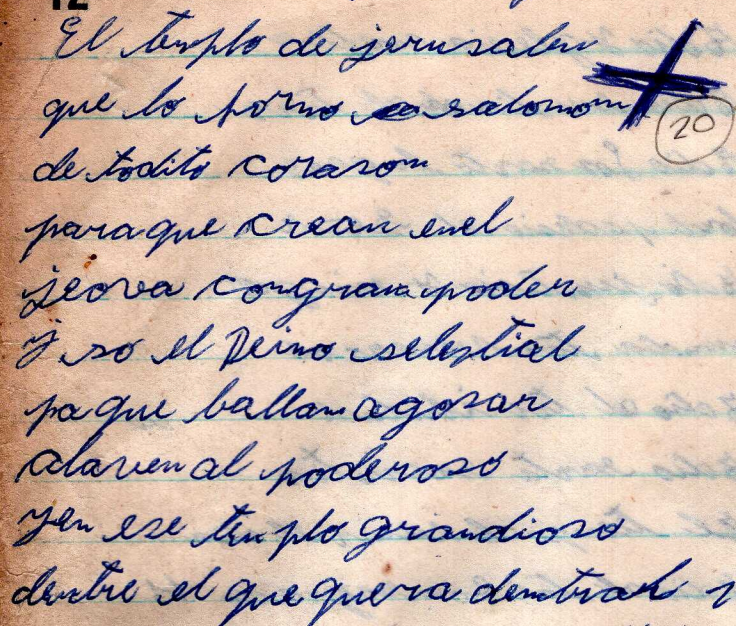 12
El templo de jerusalen
que lo formo salomon
20
de todito corason
para que crean enel
jeova con gran poder
y so el Reino selestial
pa que ballan a gosar
alaven al poderoso
y en ese templo grandioso
dentre el que quera dentrar